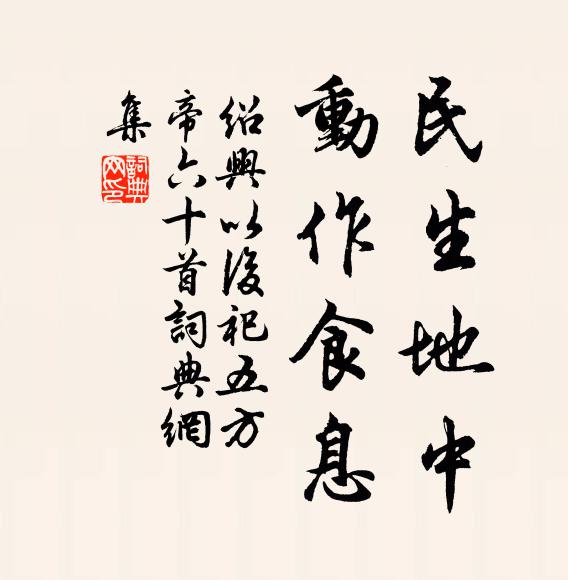 民生地中
動作食息
紹興以後祀五方
帝六十首詞典網
集
詞典網印